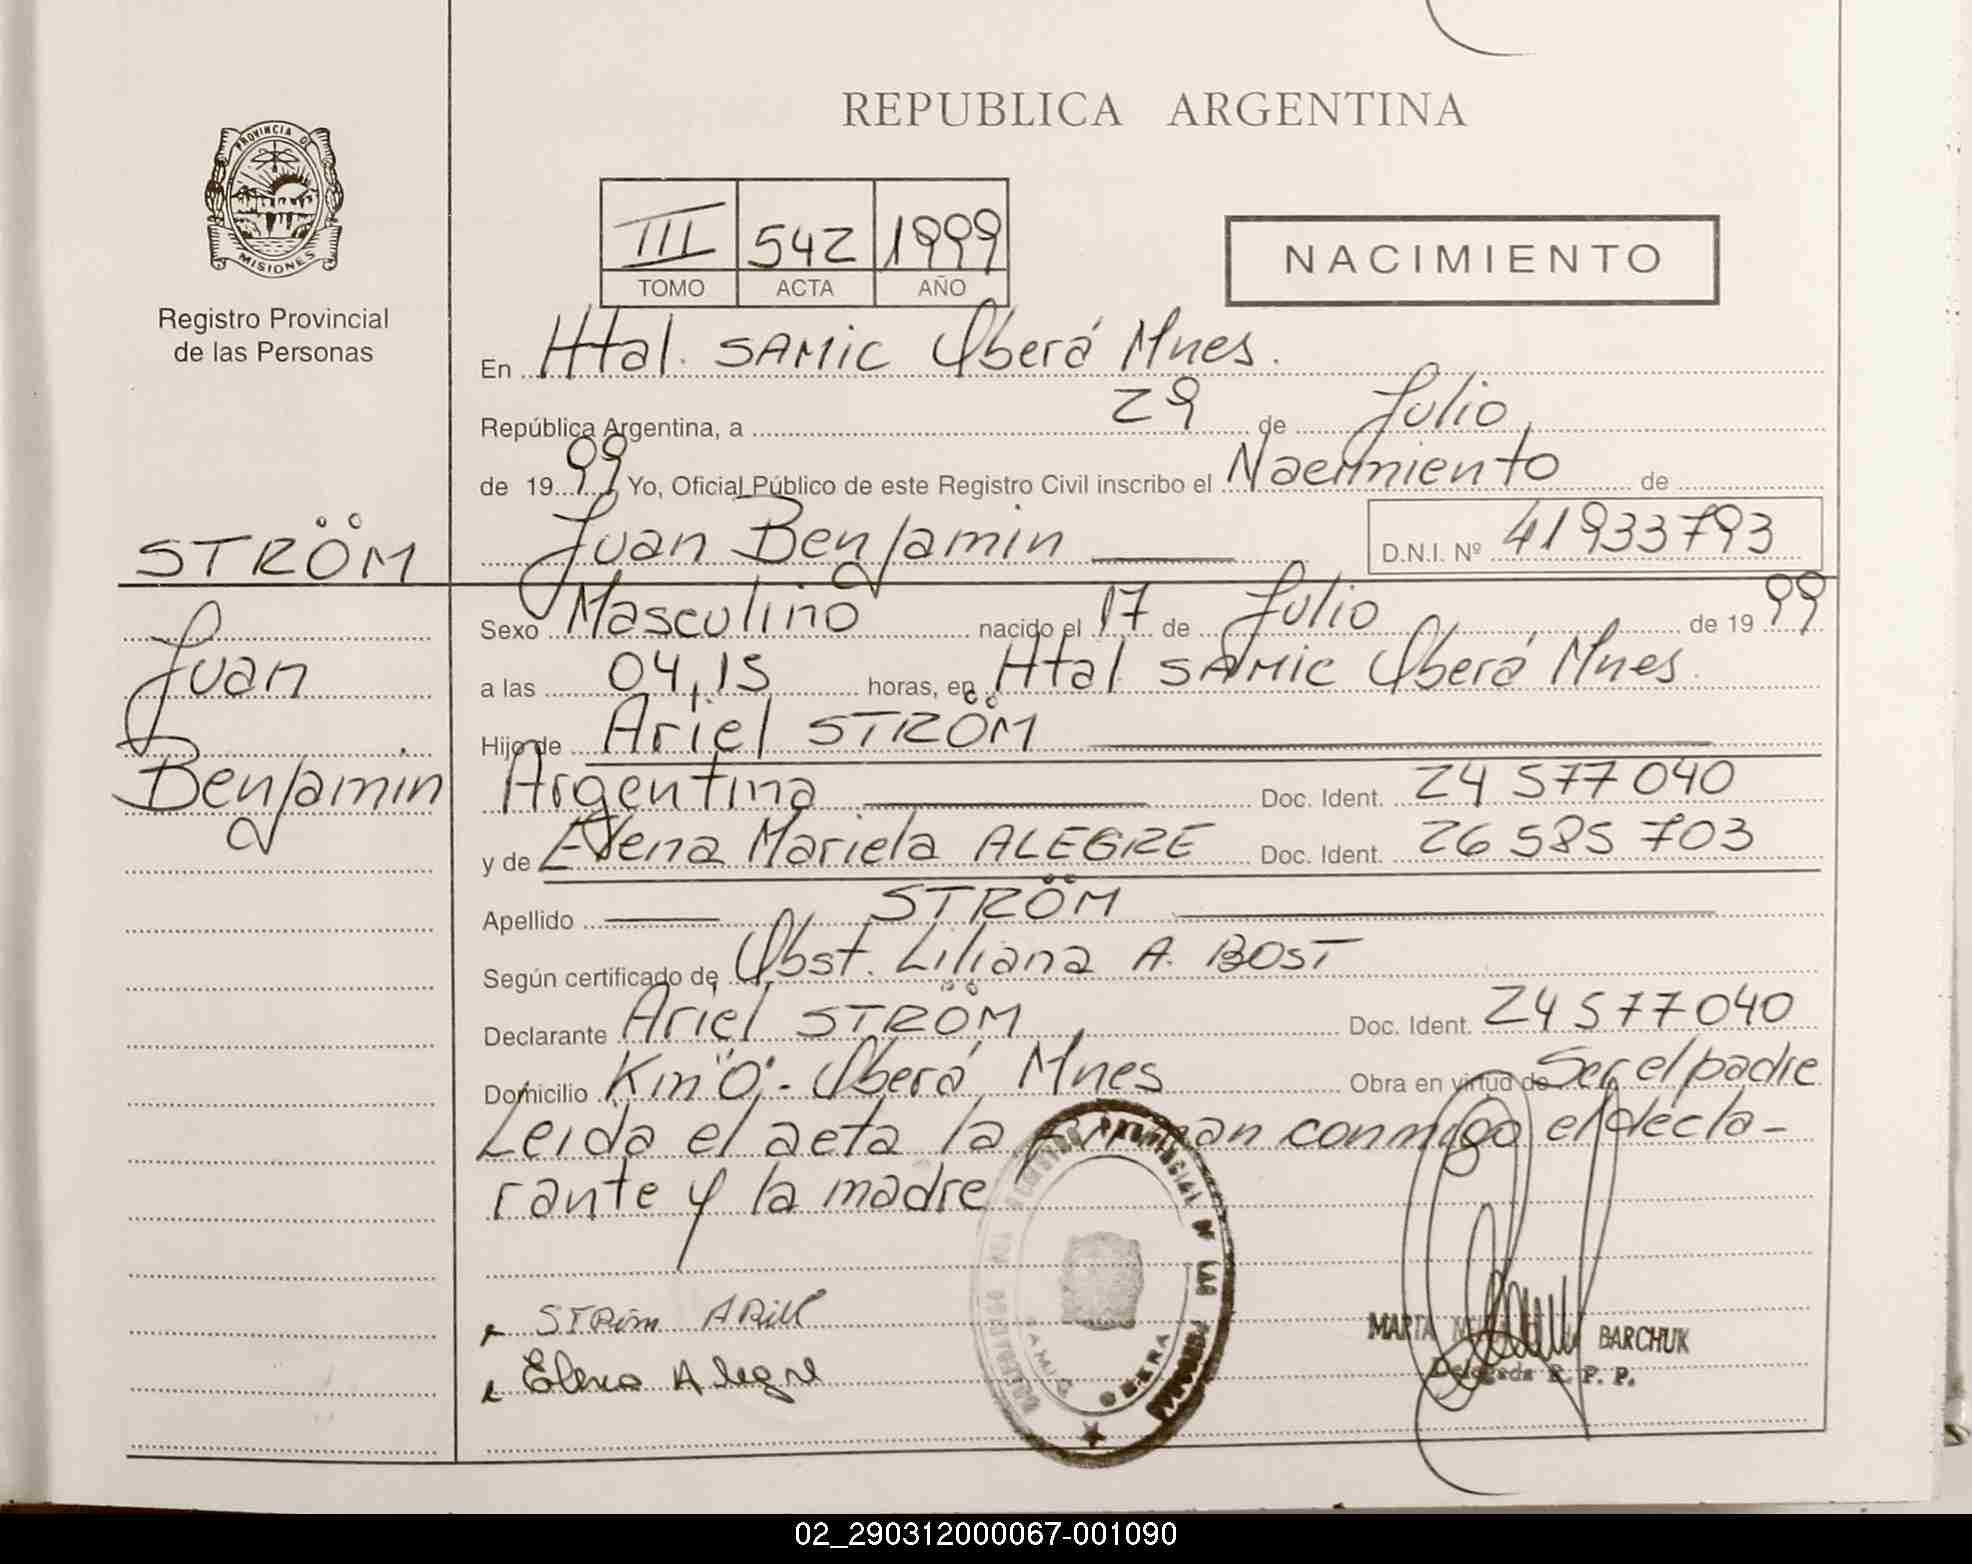 REPUBLICA ARGENTINA
PROVINCIA DE
MISIONES
Registro Provincial
de las Personas
III 542 1999
TOMO ACTA AÑO
NACIMIENTO
En Htal. SAMIC Oberá Mnes.
República Argentina, a 29 de Julio
de 1999 Yo, Oficial Público de este Registro Civil inscribo el Nacimiento de
STRÖM
Juan Benjamin
D.N.I. Nº 41933793
Juan
Benjamin
Sexo Masculino nacido el 17 de Julio de 1999
a las 04,15 horas, en Htal SAMIC Oberá Mnes.
Hijo de Ariel STRÖM
Argentina Doc. Ident. 24 577 040
y de Elena Mariela ALEGRE Doc. Ident. 26 585 703
Apellido STRÖM
Según certificado de Obst. Liliana A. BOST
Declarante Ariel STRÖM Doc. Ident. 24 577 040
Domicilio Km "0".- Oberá Mnes Obra en virtud de Ser el padre
Leida el acta la firman conmigo el decla-
rante y la madre
Ström Ariel
Elena Alegre
REGISTRO PROVINCIAL DE LAS PERSONAS
SAMIC OBERA
MARTA BARCHUK
Delegada R. P. P.
02_290312000067-001090